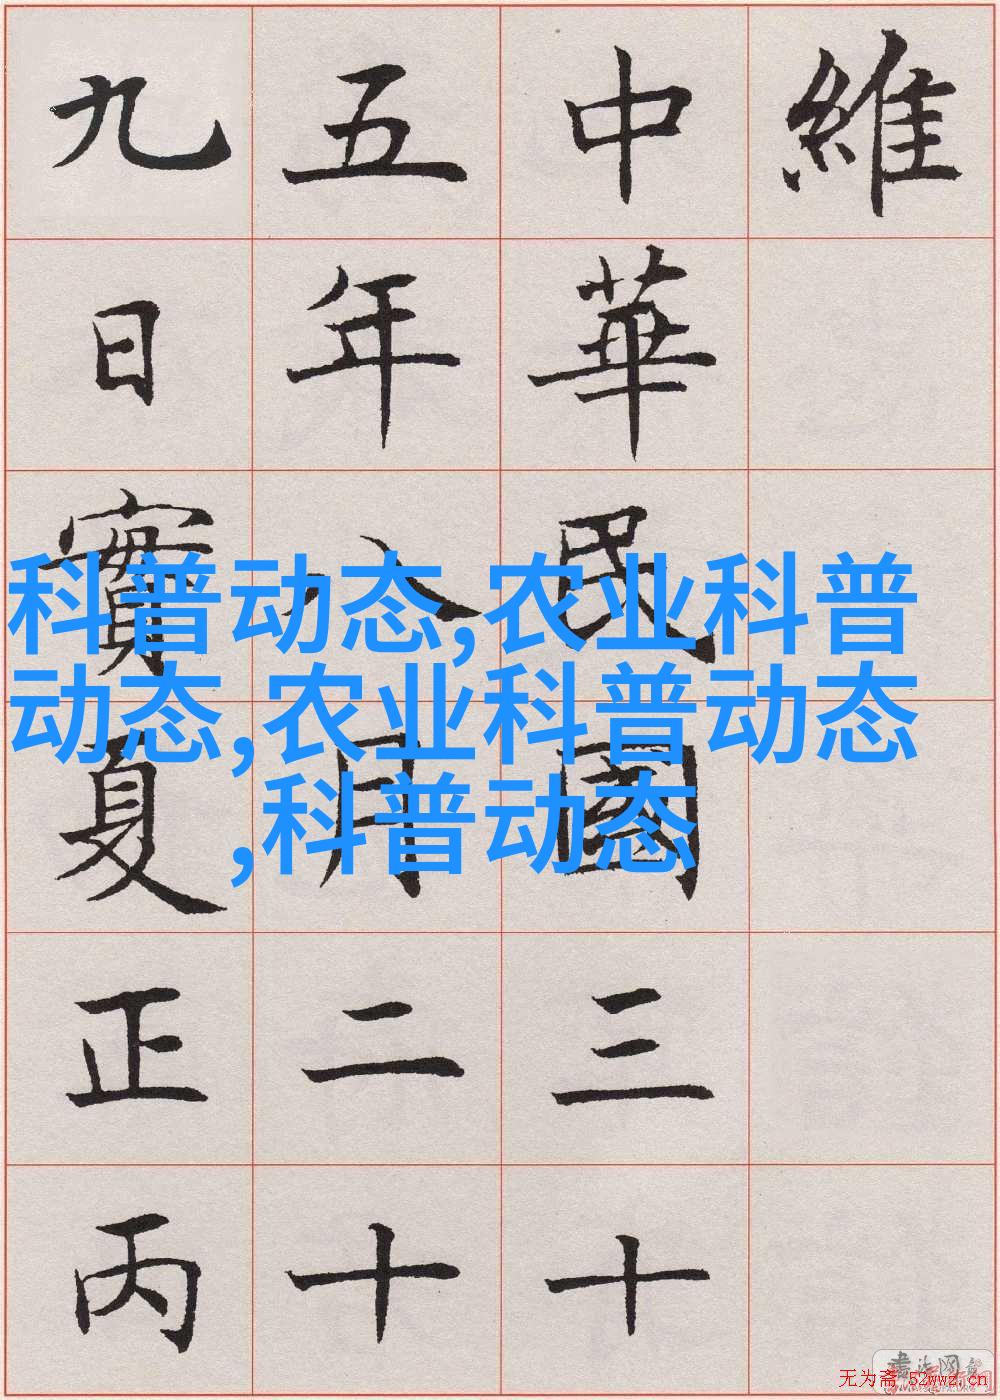 維
中華民國三十
五年八月二十
九日實夏正丙
科普动态,农业科普
动态,农业科普动态
,科普动态
无为斋 52wwz.cn